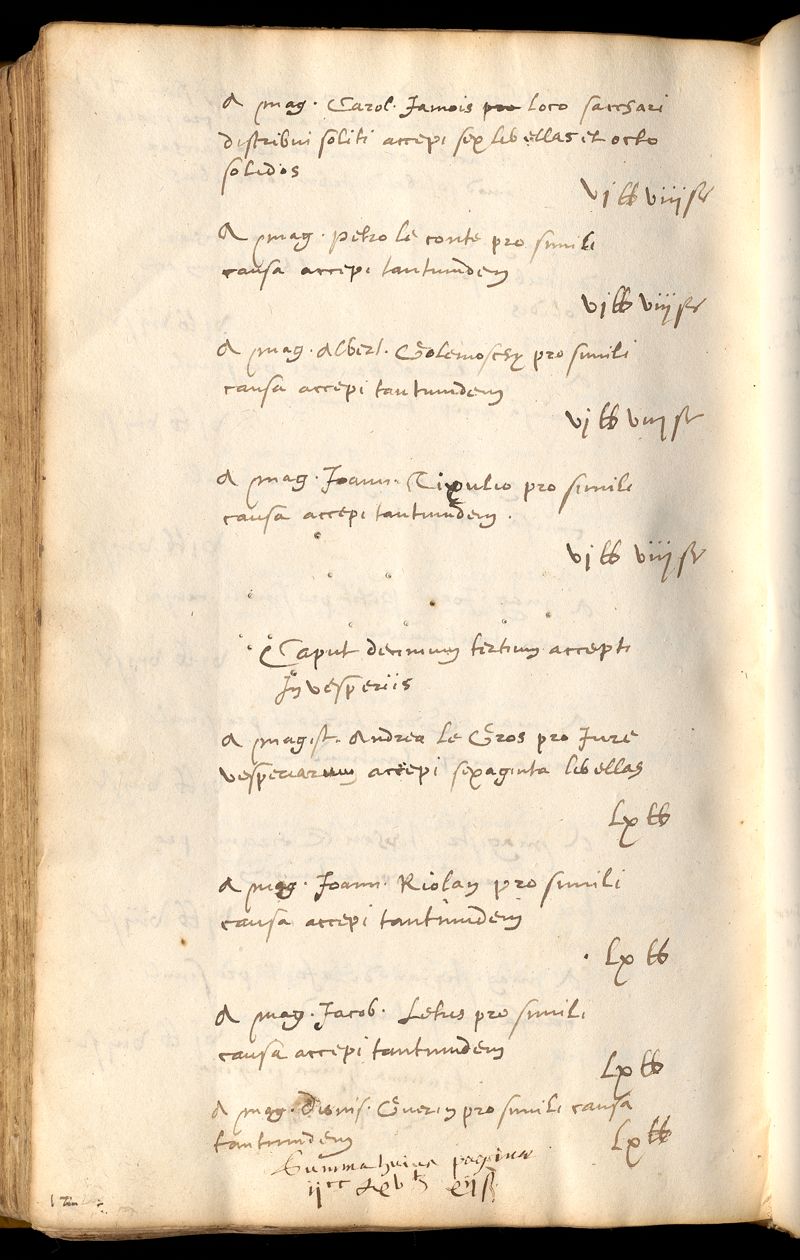 A mag. Carol. Jamois pro loco sacchari
distribui soliti accepi sex libellas et octo
solidos
vj ₶ viij ſ
A mag. petro le conte pro simili
causa accepi tantumdem
vj ₶ viij ſ
A mag. Albert. pro simili
causa accepi tantumdem
vj ₶ viij ſ
A mag. Joann. pro simili
causa accepi tantumdem.
vj ₶ viij ſ
Caput decimum tertium accepti
In vesperiis
A magist. Andrea le Gros pro Jure
vesperiarum accepi sexaginta libellas
Lx ₶
A mag. Joann. Riolan pro simili
causa accepi tantumdem
Lx ₶
A mag. Jacob. Letus pro simili
causa accepi tantumdem
Lx ₶
A mag. Dionis. Guerin pro simili causa
tantumdem
Lx ₶
Summa huius paginae
ijcc Lxv